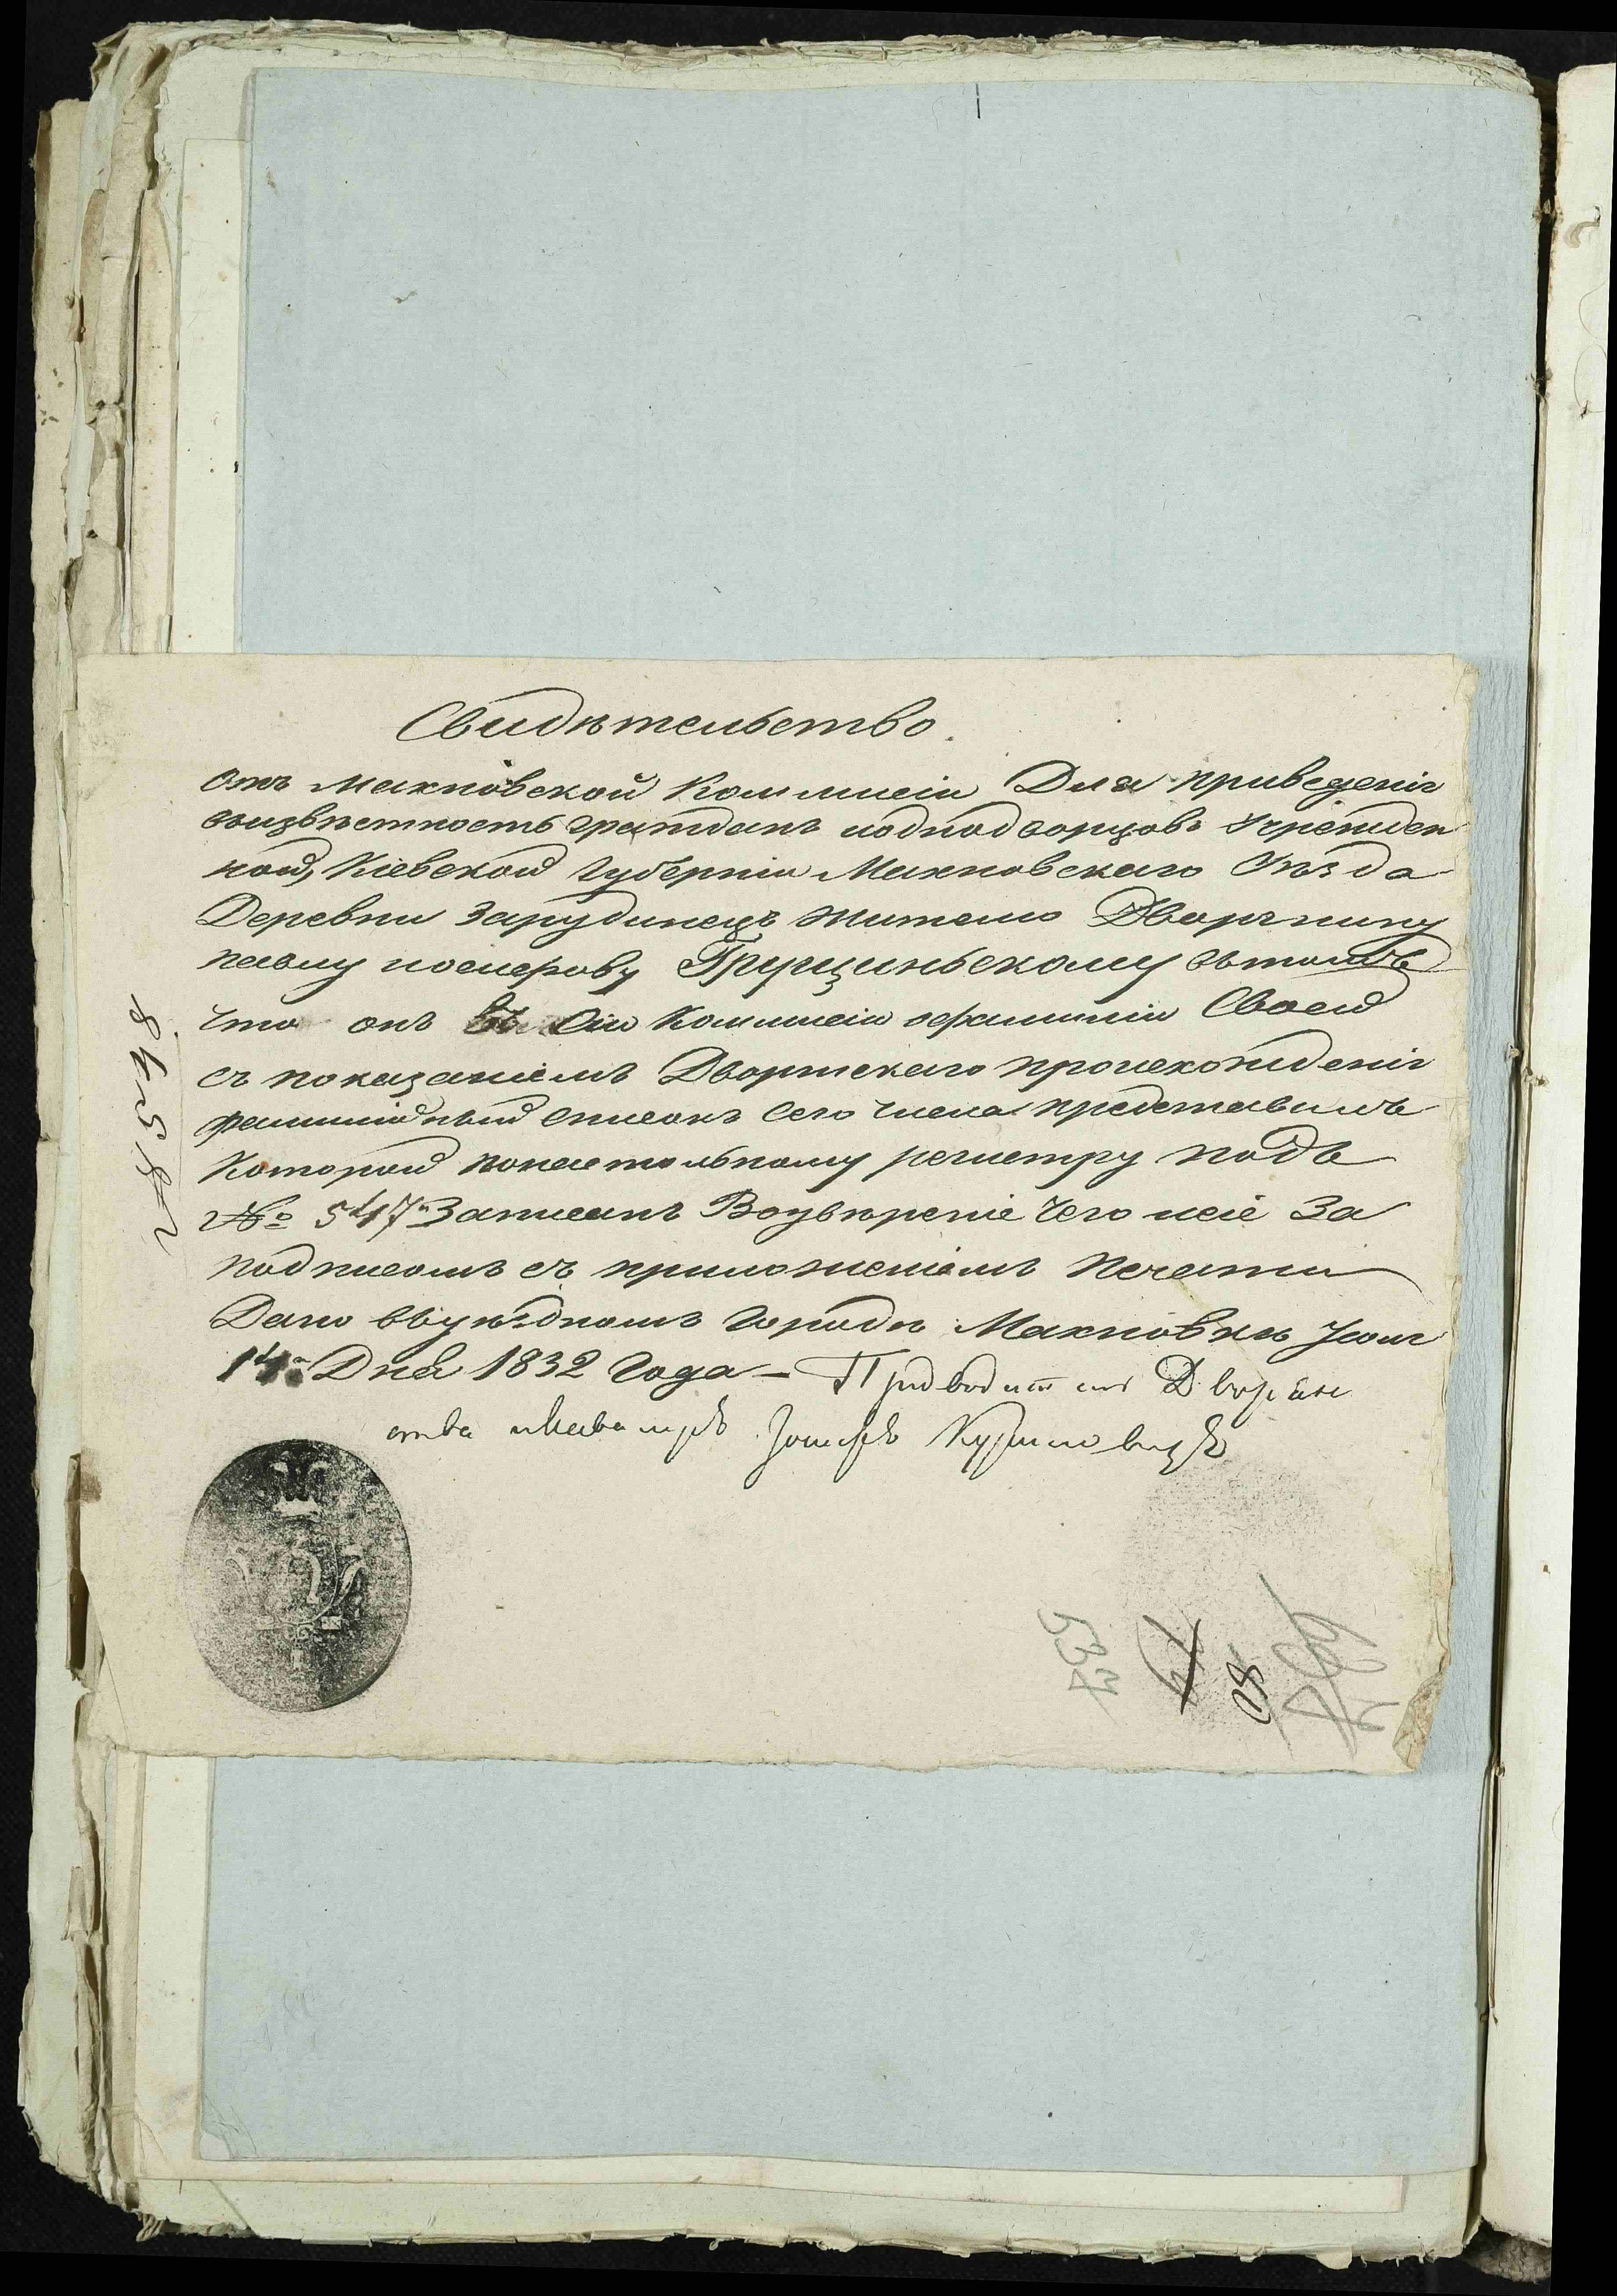 Свидѣтельство.
отъ Махновской Коммисіи Для приведенія
визвѣстность гражданъ иоднодворцовъ Учрежден
ной, Кіевской Губерніи Махновскаго Уѣзда
Деревни Зарудинецъ жителю Дворянину
павлу иосиерову Грущинскому втомъ
что онъ въ Сіи Коммисіи офамиліи Своей
съ показаніемъ Дворянскаго происхожденія
фамилійный списокъ сего числа представилъ
Которой понастольному регистру подъ
№ 547 Записанъ Воувѣреніе чего исіе За
подписомъ съ приложеніемъ печати
Дано ввуѣздномъ городѣ Махновкѣ Іюля
14го Дня 1832 года —
Дворян
ства икавалеръ
537